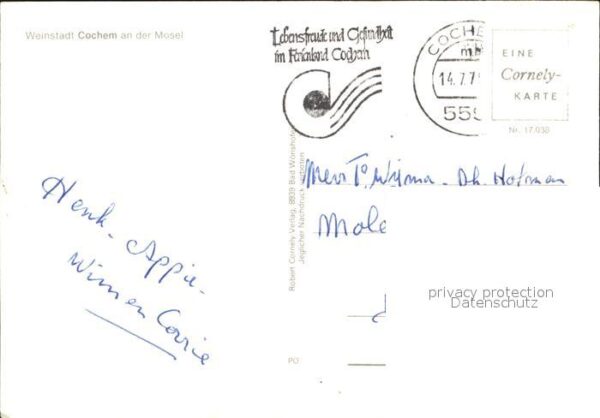 Weinstadt Cochem an der Mosel
Lebensfreude und Gesundheit
im Ferienland Cochem
COCHE
14.7.7
559
EINE
Cornely-
KARTE
Nr. 17.038
Robert Cornely Verlag, 8939 Bad Wörishofen
Jeglicher Nachdruck verboten
Henk - Appie -
Wim en Corrie
Hofman
Mole
privacy protection
Datenschutz
PO